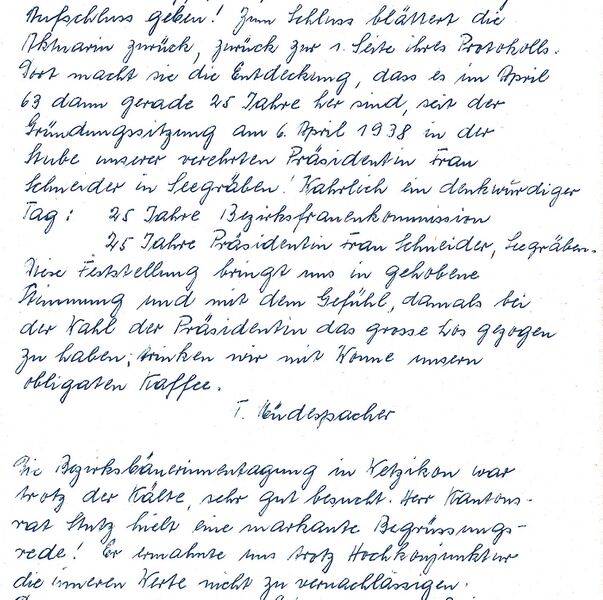 Aufschluss geben! Zum Schluss blättert die
Aktuarin zurück, zurück zur 1. Seite ihres Protokolls.
Dort macht sie die Entdeckung, dass es im April
63 dann gerade 25 Jahre her sind, seit der
Gründungssitzung am 6. April 1938 in der
Stube unserer verehrten Präsidentin Frau
Schneider in Seegräben! Wahrlich ein denkwürdiger
Tag: 25 Jahre Bezirksfrauenkommission
25 Jahre Präsidentin Frau Schneider, Seegräben.
Diese Feststellung bringt uns in gehobene
Stimmung und mit dem Gefühl, damals bei
der Wahl der Präsidentin das grosse Los gezogen
zu haben, trinken wir mit Wonne unsern
obligaten Kaffee.
Die Bezirksbäuerinnentagung in Wetzikon war
trotz der Kälte, sehr gut besucht. Herr Kantons-
rat Stutz hielt eine markante Begrüssungs-
rede! Er ermahnte uns trotz Hochkonjunktur
die inneren Werte nicht zu vernachlässigen.